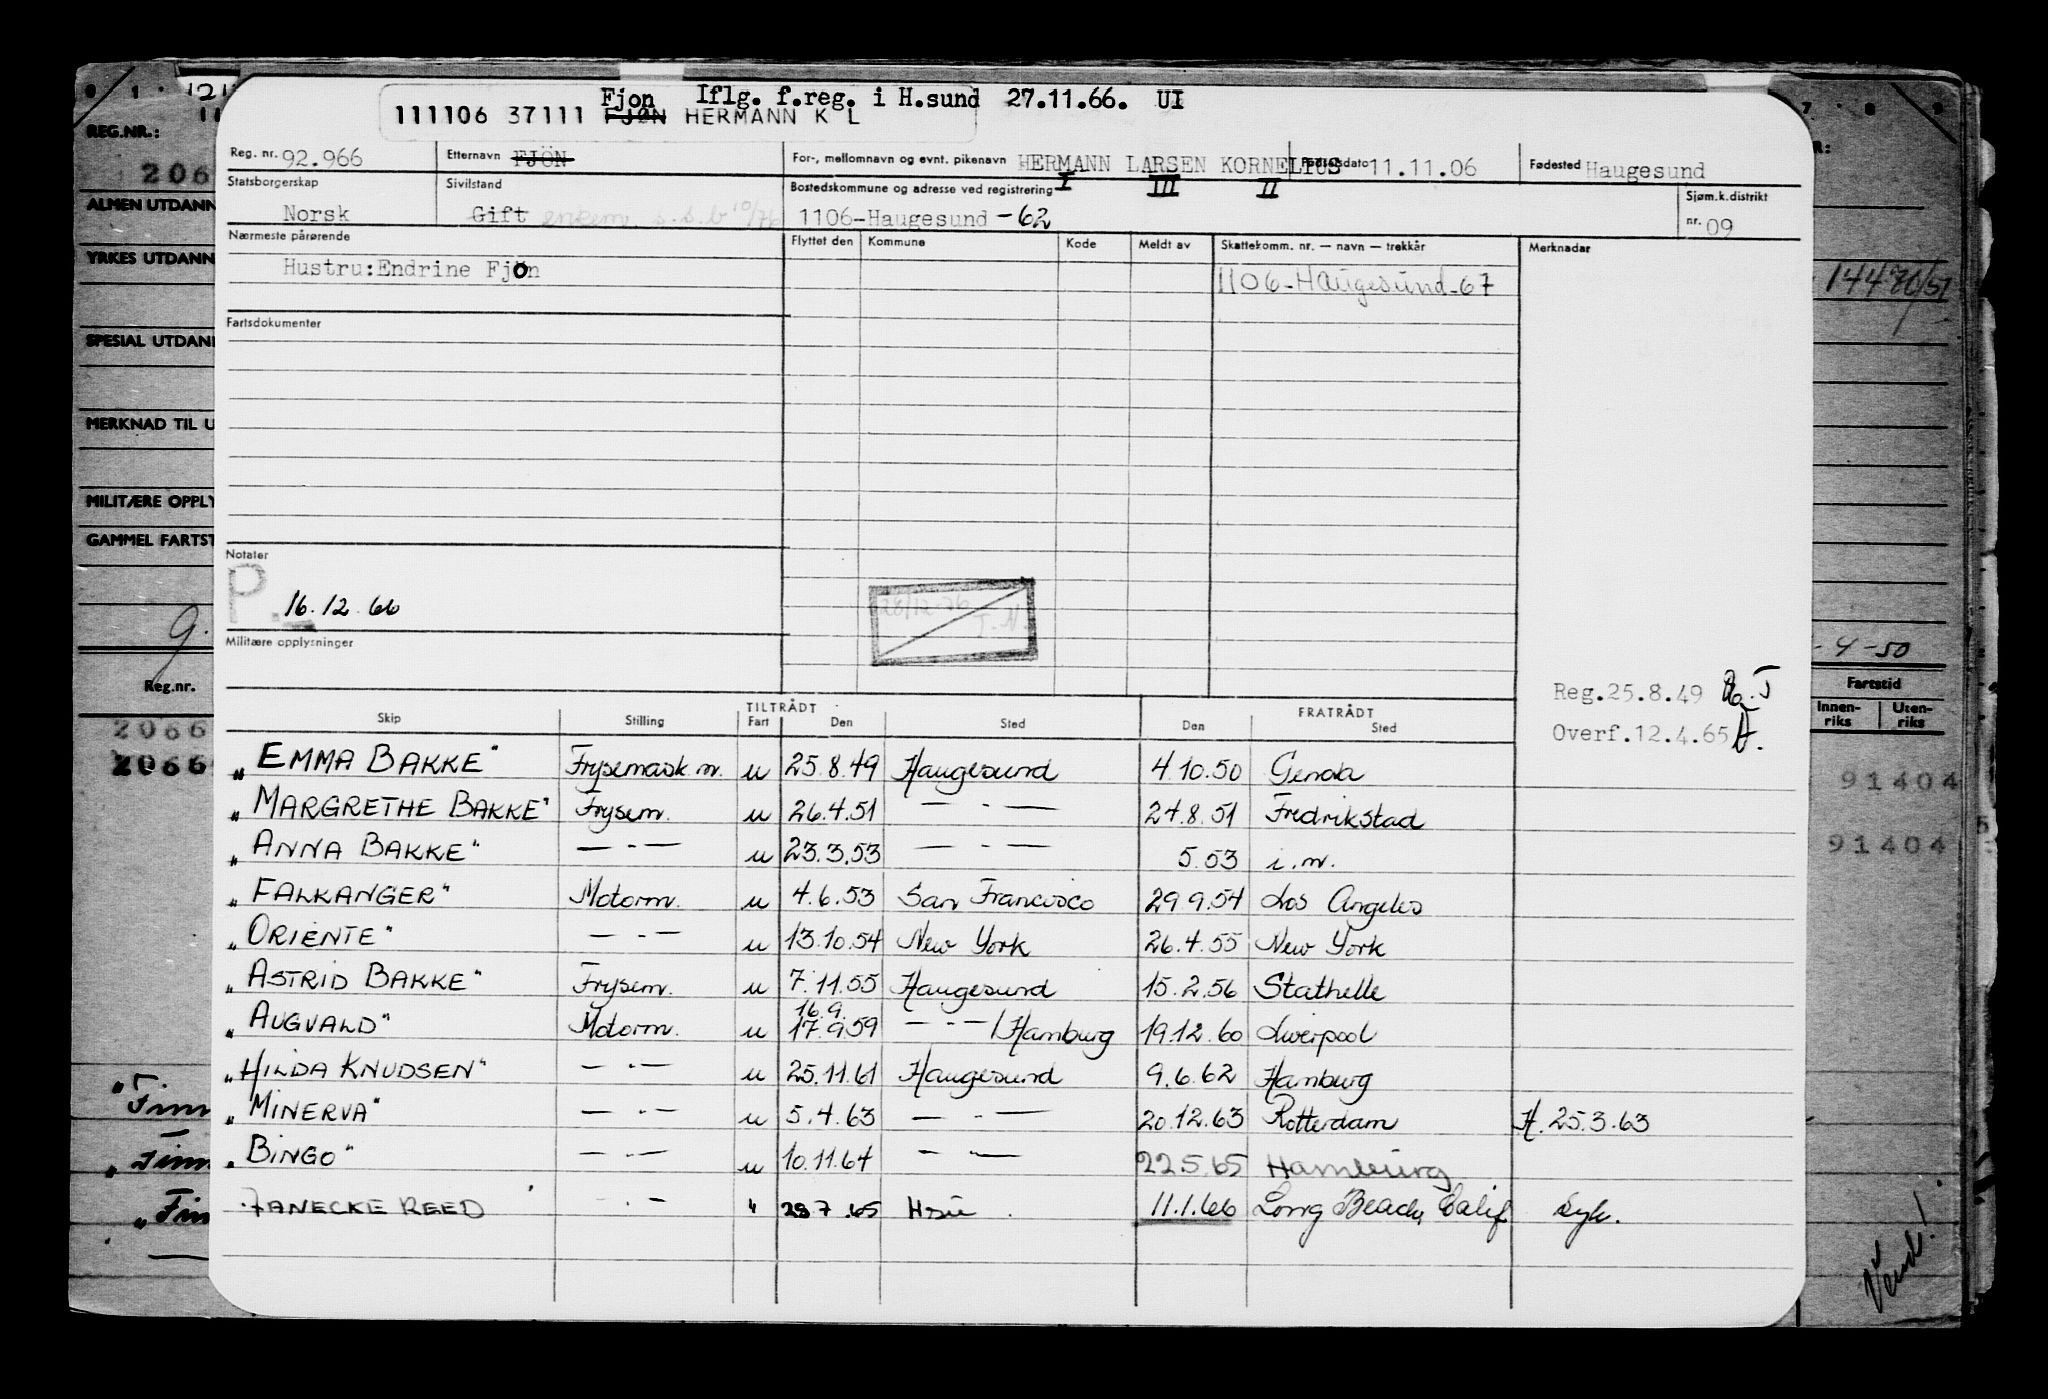 Fjon Iflg. f.reg. i H.sund 27.11.66. UI
111106 37111 FJØN HERMANN K L
Reg. nr. 92.966 Etternavn FJÖN For-, mellomnavn og evnt. pikenavn HERMANN LARSEN KORNELIUS Fødselsdato 11.11.06 Fødested Haugesund
I III II
Statsborgerskap Sivilstand Bostedskommune og adresse ved registrering Sjøm.k.distrikt
Norsk Gift enkem. s.s.b 10/76 1106-Haugesund -62 nr. 09
Nærmeste pårørende Flyttet den Kommune Kode Meldt av Skattekomm. nr. — navn — trekkår Merknadar
Hustru:Endrine Fjon 1106-Haugesund-67
Fartsdokumenter
Notater
P. 16.12.66
28/12-76
T.N.
Militære opplysninger
Reg.25.8.49
Overf.12.4.65
TILTRÅDT FRATRÅDT
Skip Stilling Fart Den Sted Den Sted
„EMMA BAKKE" Frysemask.m. u 25.8.49 Haugesund 4.10.50 Genoa
„MARGRETHE BAKKE" Frysem. u 26.4.51 — " — 27.8.51 Fredrikstad
„ANNA BAKKE" — " — u 23.3.53 — " — 5.53 i.m.
„FALKANGER" Motorm. u 4.6.53 San Francisco 29.9.54 Los Angeles
„ORIENTE" — " — u 13.10.54 New York 26.4.55 New York
„ASTRID BAKKE" Frysem. u 7.11.55 Haugesund 15.2.56 Stathelle
16.9.
„AUGVALD" Motorm. u 17.9.59 — " — / Hamburg 19.12.60 Liverpool
„HILDA KNUDSEN" — " — u 25.11.61 Haugesund 9.6.62 Hamburg
„MINERVA" — " — u 5.4.63 — " — 20.12.63 Rotterdam H. 25.3.63
„BINGO" — " — u 10.11.64 — " — 22.5.65 Hamburg
JANECKE REED - " - " 28.7.65 Hsu. 11.1.66 Long Beach, Calif Syk.
REG.NR.:
206
ALMEN UTDANN
YRKES UTDANN
SPESIAL UTDAN
MERKNAD TIL U
MILITÆRE OPPLY
GAMMEL FARTST
Reg.nr.
2066
2066
„Finn
„Finn
„Finn
14480/51
- 4 - 50
Fartstid
Innen-riks Uten-riks
91404
91404
Vend!